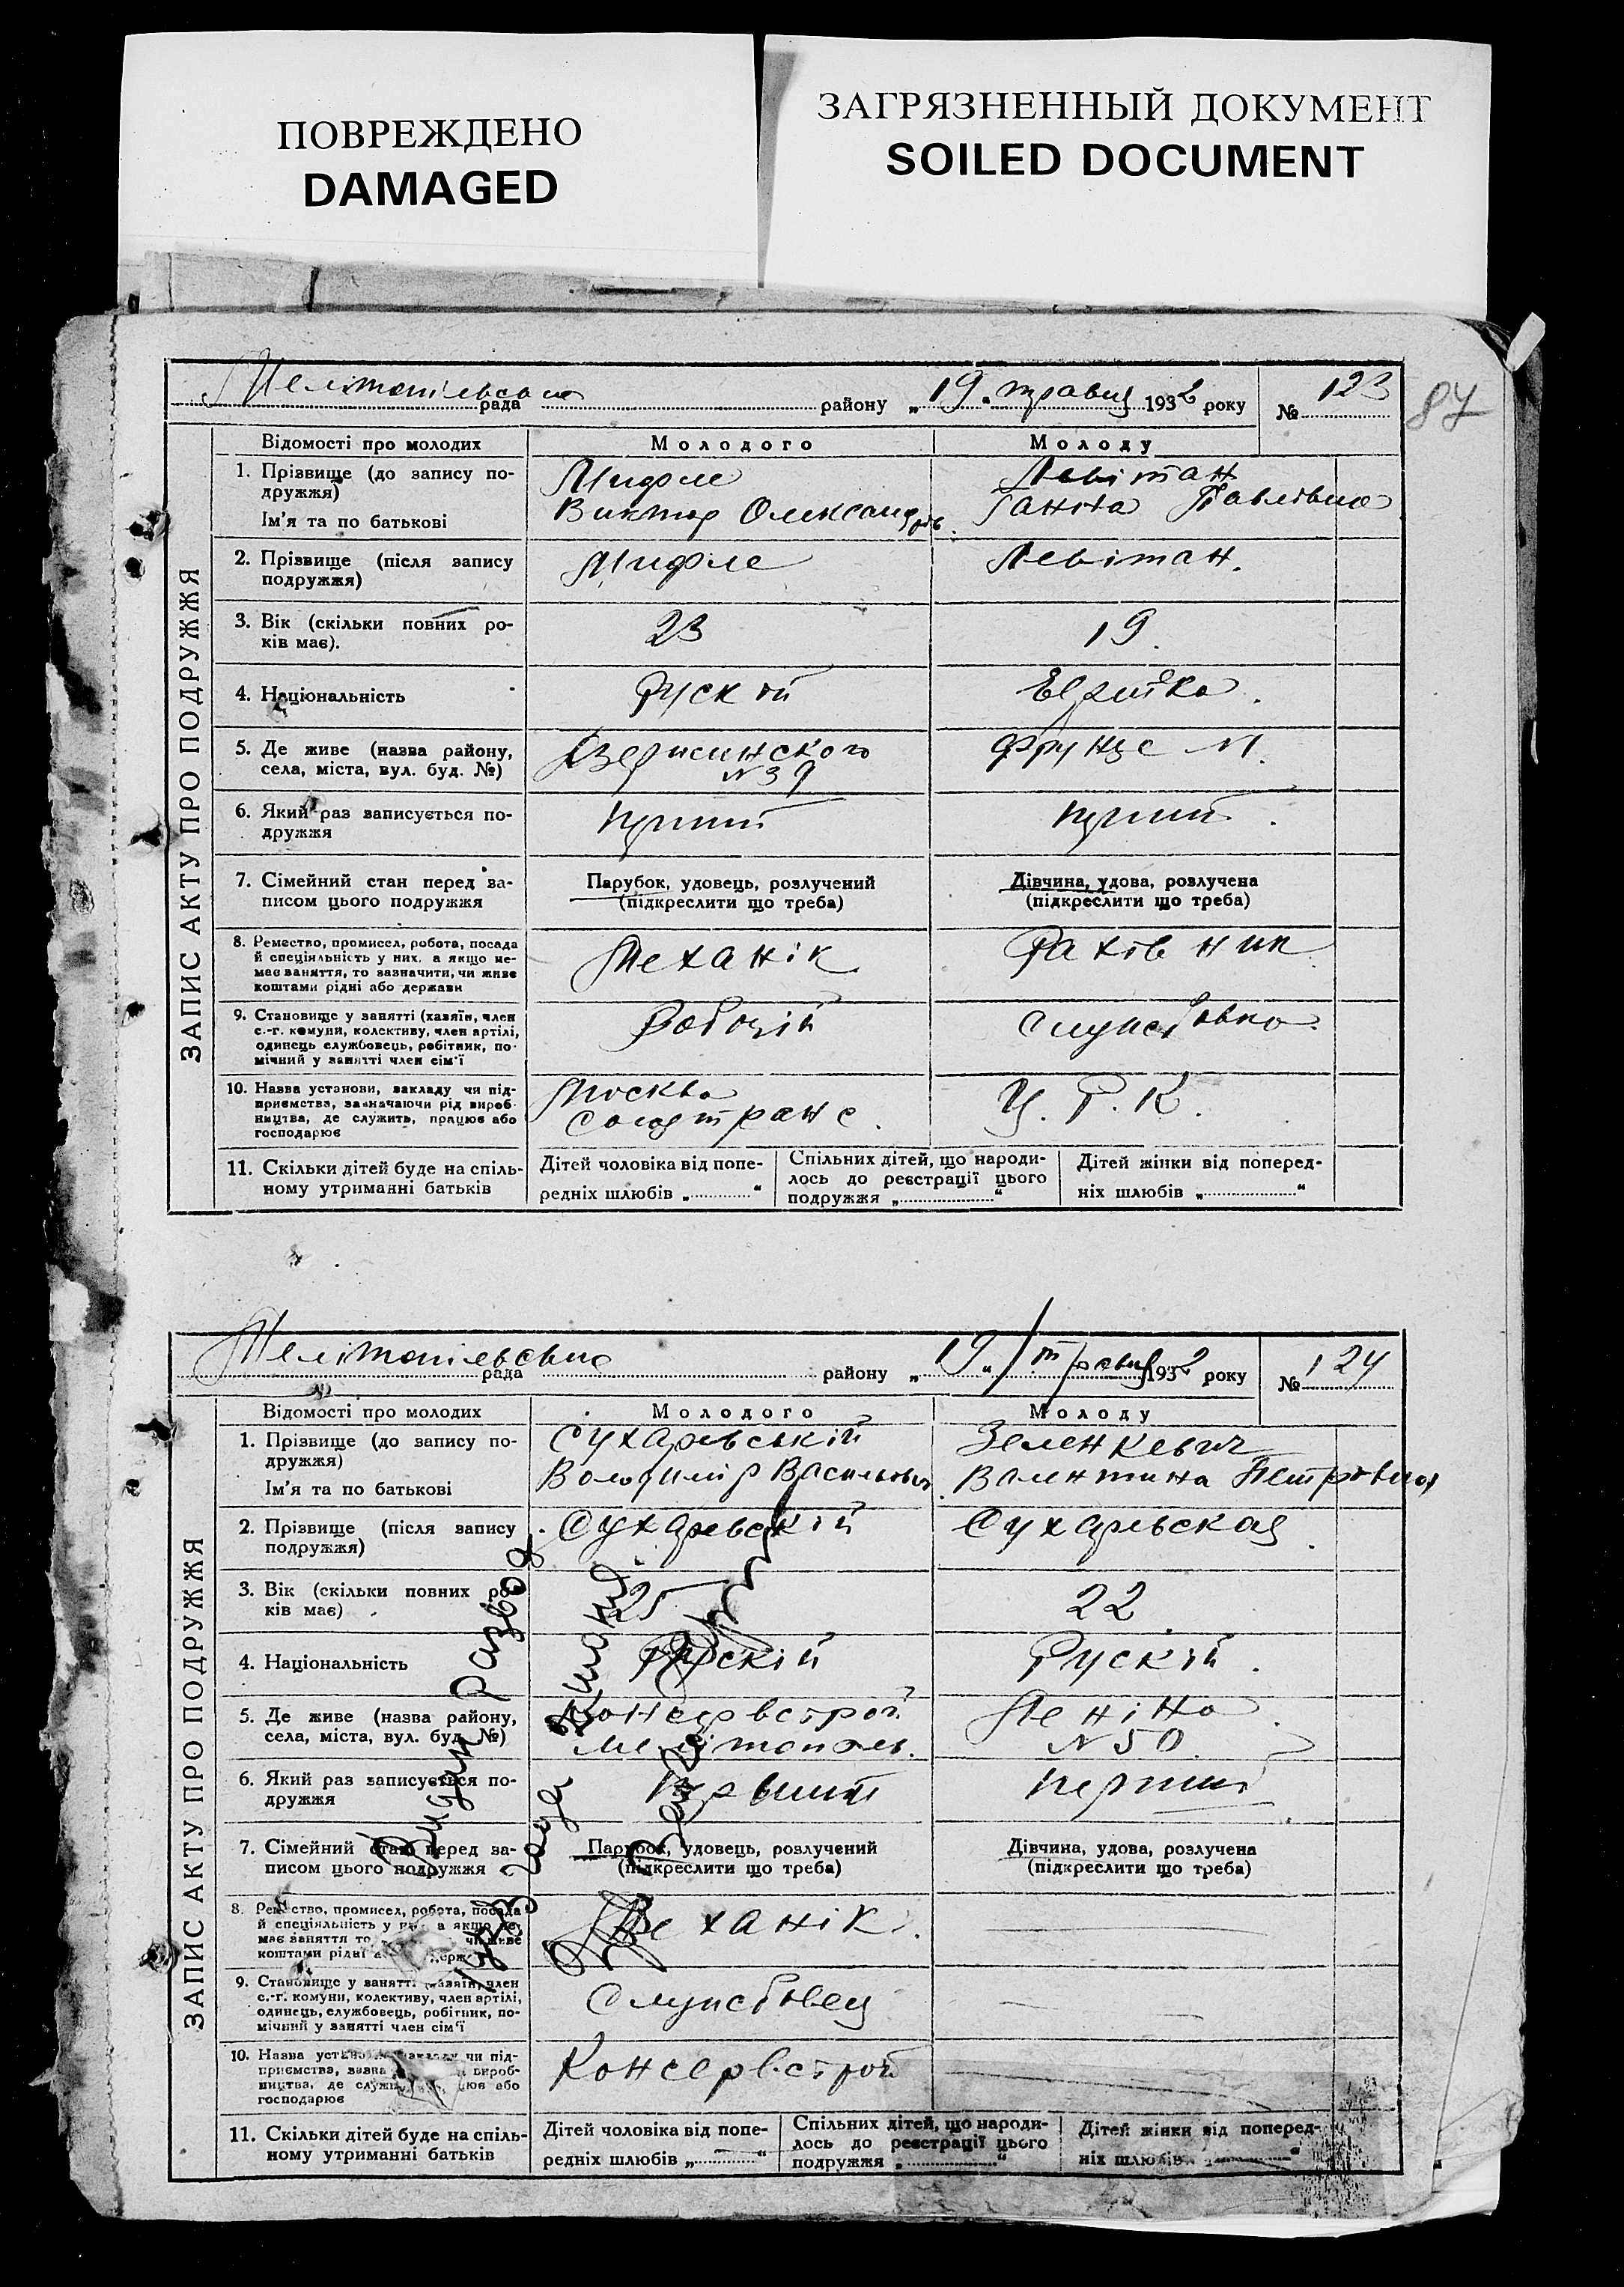 ПОВРЕЖДЕНО
DAMAGED
ЗАГРЯЗНЕННЫЙ ДОКУМЕНТ
SOILED DOCUMENT
87
ЗАПИС АКТУ ПРО ПОДРУЖЖЯ
Мелітопільська рада району „19„ травня 1932 року № 123
Відомості про молодих Молодого Молоду
1. Прізвище (до запису по-
дружжя)
Ім'я та по батькові
Левітан
Виктор Олександров
Ганна Павлівна
2. Прізвище (після запису
подружжя)
Левітан.
3. Вік (скільки повних ро-
ків має).
23 19.
4. Національність
Рускій Еврейка.
5. Де живе (назва району,
села, міста, вул. буд. №)
Дзержинского
N 39
Фрунзе
6. Який раз записується по-
дружжя
7. Сімейний стан перед за-
писом цього подружжя
Парубок, удовець, розлучений
(підкреслити що треба)
Дівчина, удова, розлучена
(підкреслити що треба)
8. Ремество, промисел, робота, посада
й спеціяльність у них, а якщо не-
має заняття, то зазначити, чи живе
коштами рідні або держави
Механік Рахівник
9. Становище у занятті (хазяїн, член
с.-г. комуни, колективу, член артілі,
одинець службовець, робітник, по-
мічний у занятті член сім'ї
Робочій Службовка.
10. Назва установи, закладу чи під-
приємства, зазначаючи рід вироб-
ництва, де служить, працює або
господарює
Москва
Союзтранс.
Ц. Р. К.
11. Скільки дітей буде на спіль-
ному утриманні батьків
Дітей чоловіка від попе-
редніх шлюбів „ “
Спільних дітей, що народи-
лось до реєстрації цього
подружжя „ “
Дітей жінки від поперед-
ніх шлюбів „ “
ЗАПИС АКТУ ПРО ПОДРУЖЖЯ
Мелітопільська рада району „19“ травня 1932 року № 124
Відомості про молодих Молодого Молоду
1. Прізвище (до запису по-
дружжя)
Ім'я та по батькові
Сухаревській
Володимір Васильович
Зеленкевич
Валентина Петровна
2. Прізвище (після запису
подружжя)
Сухаревскій Сухаревская
3. Вік (скільки повних ро-
ків має)
25 22
4. Національність
Рускій Рускій.
5. Де живе (назва району,
села, міста, вул. буд. №)
Консервстрой
Мелітополь.
Леніна
N 50
6. Який раз записується по-
дружжя
Перший
7. Сімейний стан перед за-
писом цього подружжя
Парубок, удовець, розлучений
(підкреслити що треба)
Дівчина, удова, розлучена
(підкреслити що треба)
8. Ремество, промисел, робота, посада
й спеціяльність у а якщо не-
має заняття то чи живе
коштами рідні
Механік.
9. Становище у занятті (хазяїн, член
с.-г. комуни, колективу, член артілі,
одинець, службовець, робітник, по-
мічний у занятті член сім'ї
Службовец
10. Назва чи під-
приємства, вироб-
ництва, де або
господарює
Консервстрой
11. Скільки дітей буде на спіль-
ному утриманні батьків
Дітей чоловіка від попе-
редніх шлюбів „ “
Спільних дітей, що народи-
лось до реєстрації цього
подружжя „ “
Дітей жінки від поперед-
ніх шлюбів „ “
развод